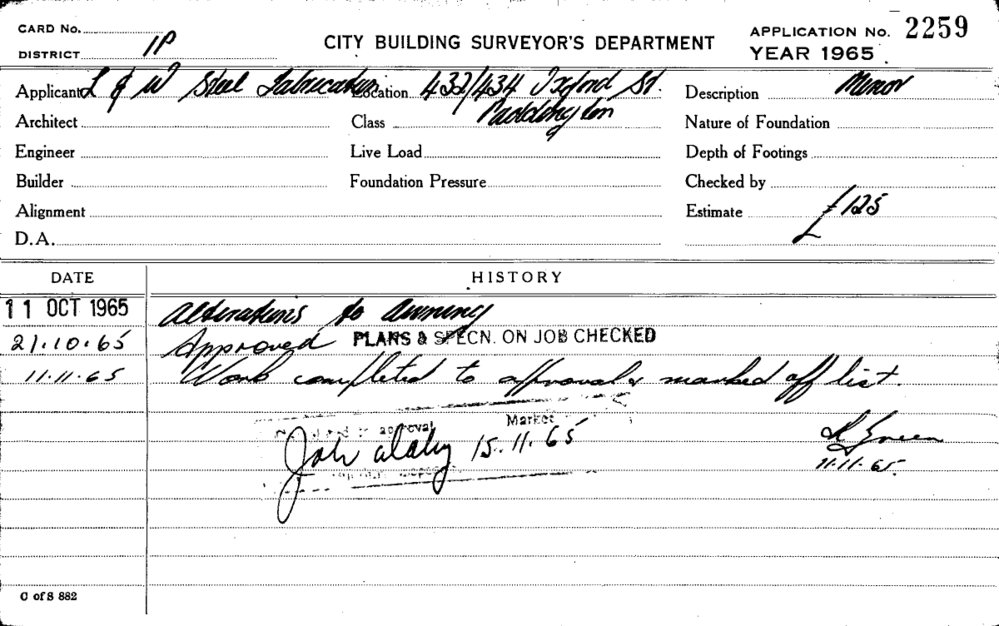 CARD No.
DISTRICT 1P
CITY BUILDING SURVEYOR'S DEPARTMENT
APPLICATION No. 2259
YEAR 1965
Applicant L & W Steel Fabricators Location 432/434 Oxford St. Description Minor
Architect Class Paddington Nature of Foundation
Engineer Live Load Depth of Footings
Builder Foundation Pressure Checked by
Alignment Estimate £125
D.A.
DATE HISTORY
11 OCT 1965 Alterations to Awning
21.10.65 Approved PLANS & SPECN. ON JOB CHECKED
11.11.65 Work completed to approval & marked off list.
approval Market
15.11.65
Green
11.11.65
C of S 882